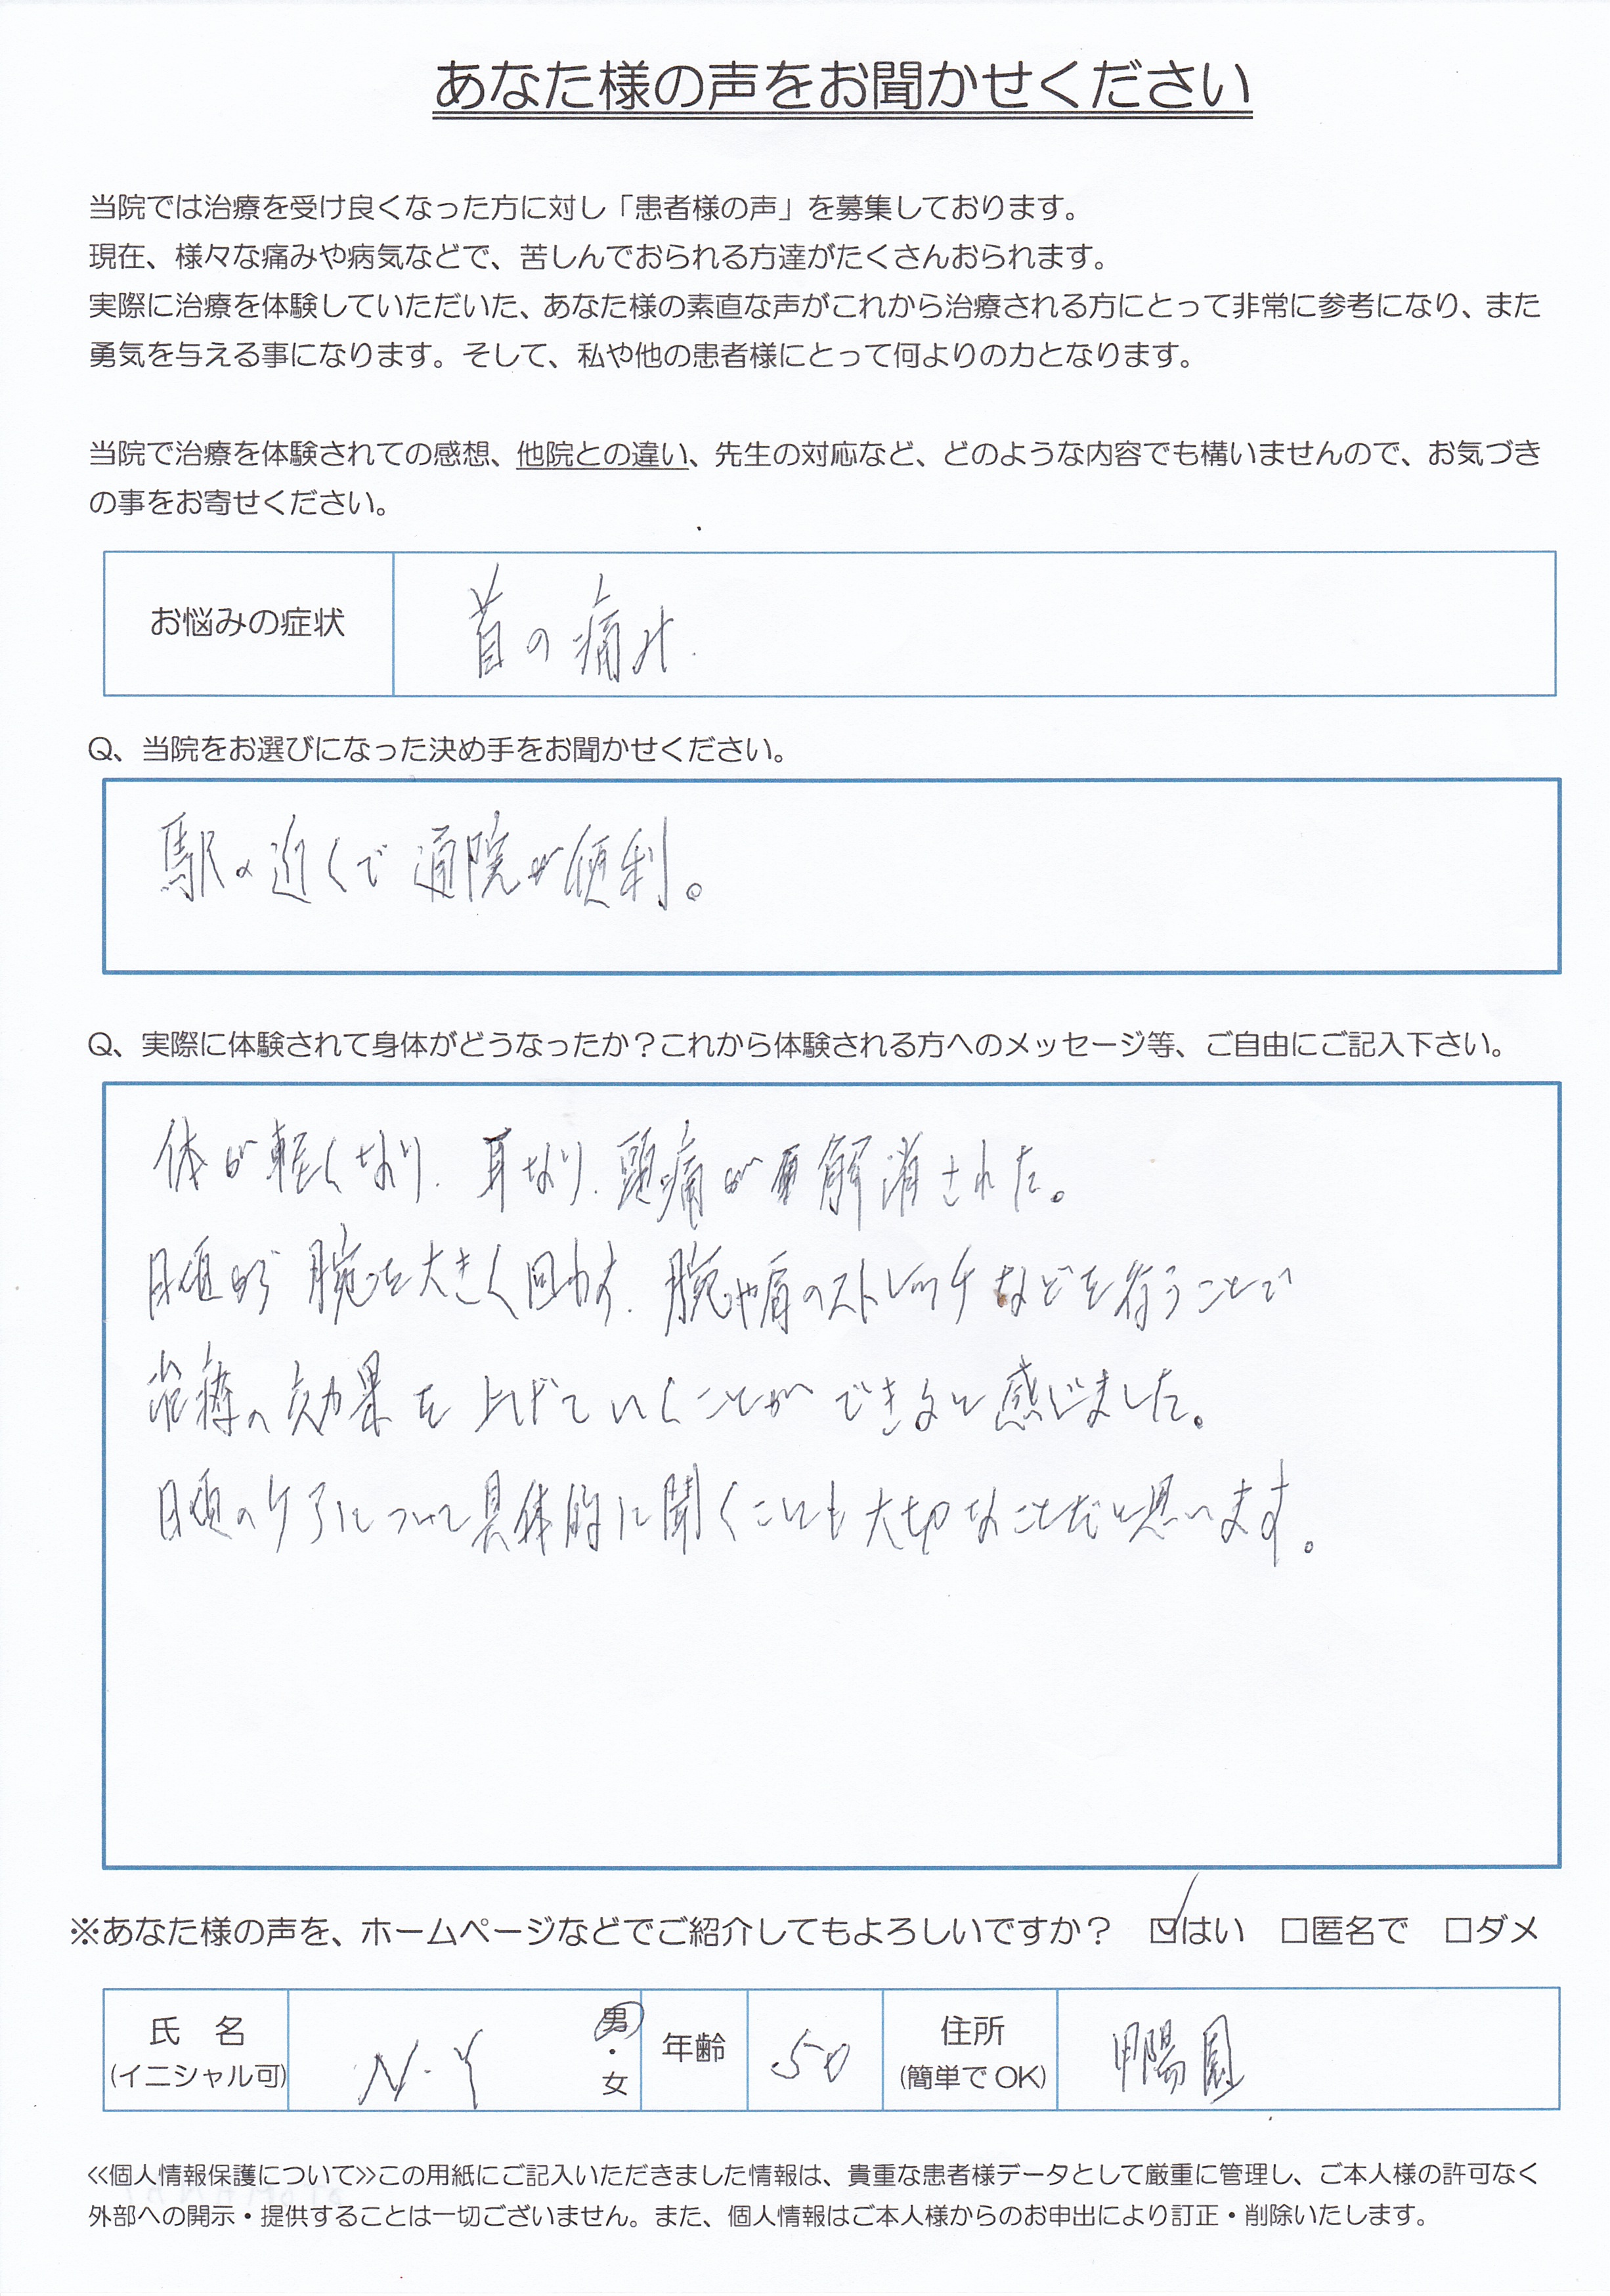 あなた様の声をお聞かせください
当院では治療を受け良くなった方に対し「患者様の声」を募集しております。
現在、様々な痛みや病気などで、苦しんでおられる方達がたくさんおられます。
実際に治療を体験していただいた、あなた様の素直な声がこれから治療される方にとって非常に参考になり、また
勇気を与える事になります。そして、私や他の患者様にとって何よりの力となります。
当院で治療を体験されての感想、他院との違い、先生の対応など、どのような内容でも構いませんので、お気づき
の事をお寄せください。
お悩みの症状 首の痛み.
Q、当院をお選びになった決め手をお聞かせください。
駅の近くで通院が便利。
Q、実際に体験されて身体がどうなったか？これから体験される方へのメッセージ等、ご自由にご記入下さい。
体が軽くなり、耳なり、頭痛が解消された。
日頃から腕を大きく回わす、腕や肩のストレッチなどを行うことで
治療の効果を上げていくことができると感じました。
日頃のケアについて具体的に聞くことも大切なことだと思います。
※あなた様の声を、ホームページなどでご紹介してもよろしいですか？ ☑はい □匿名で □ダメ
氏 名 (イニシャル可) N.Y 男・女 年齢 50 住所 (簡単でOK) 甲陽園
≪個人情報保護について≫この用紙にご記入いただきました情報は、貴重な患者様データとして厳重に管理し、ご本人様の許可なく
外部への開示・提供することは一切ございません。また、個人情報はご本人様からのお申出により訂正・削除いたします。